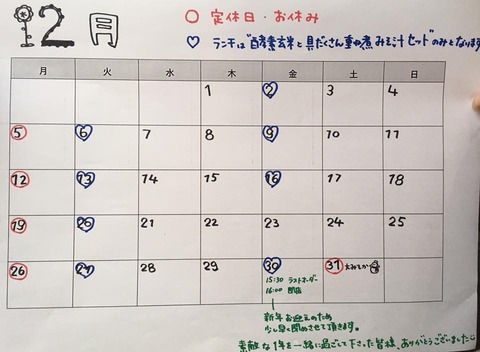 12月
○ 定休日・お休み
♡ ランチは"酵素玄米と具だくさん重ね煮みそ汁セット"のみとなります
月 火 水 木 金 土 日
1 2 3 4
5 6 7 8 9 10 11
12 13 14 15 16 17 18
19 20 21 22 23 24 25
26 27 28 29 30 31 大みそか
15:30 ラストオーダー
16:00 閉店
新年お迎えのため
少し早く閉めさせて頂きます。
素敵な1年を一緒に過ごして下さった皆様、ありがとうございました